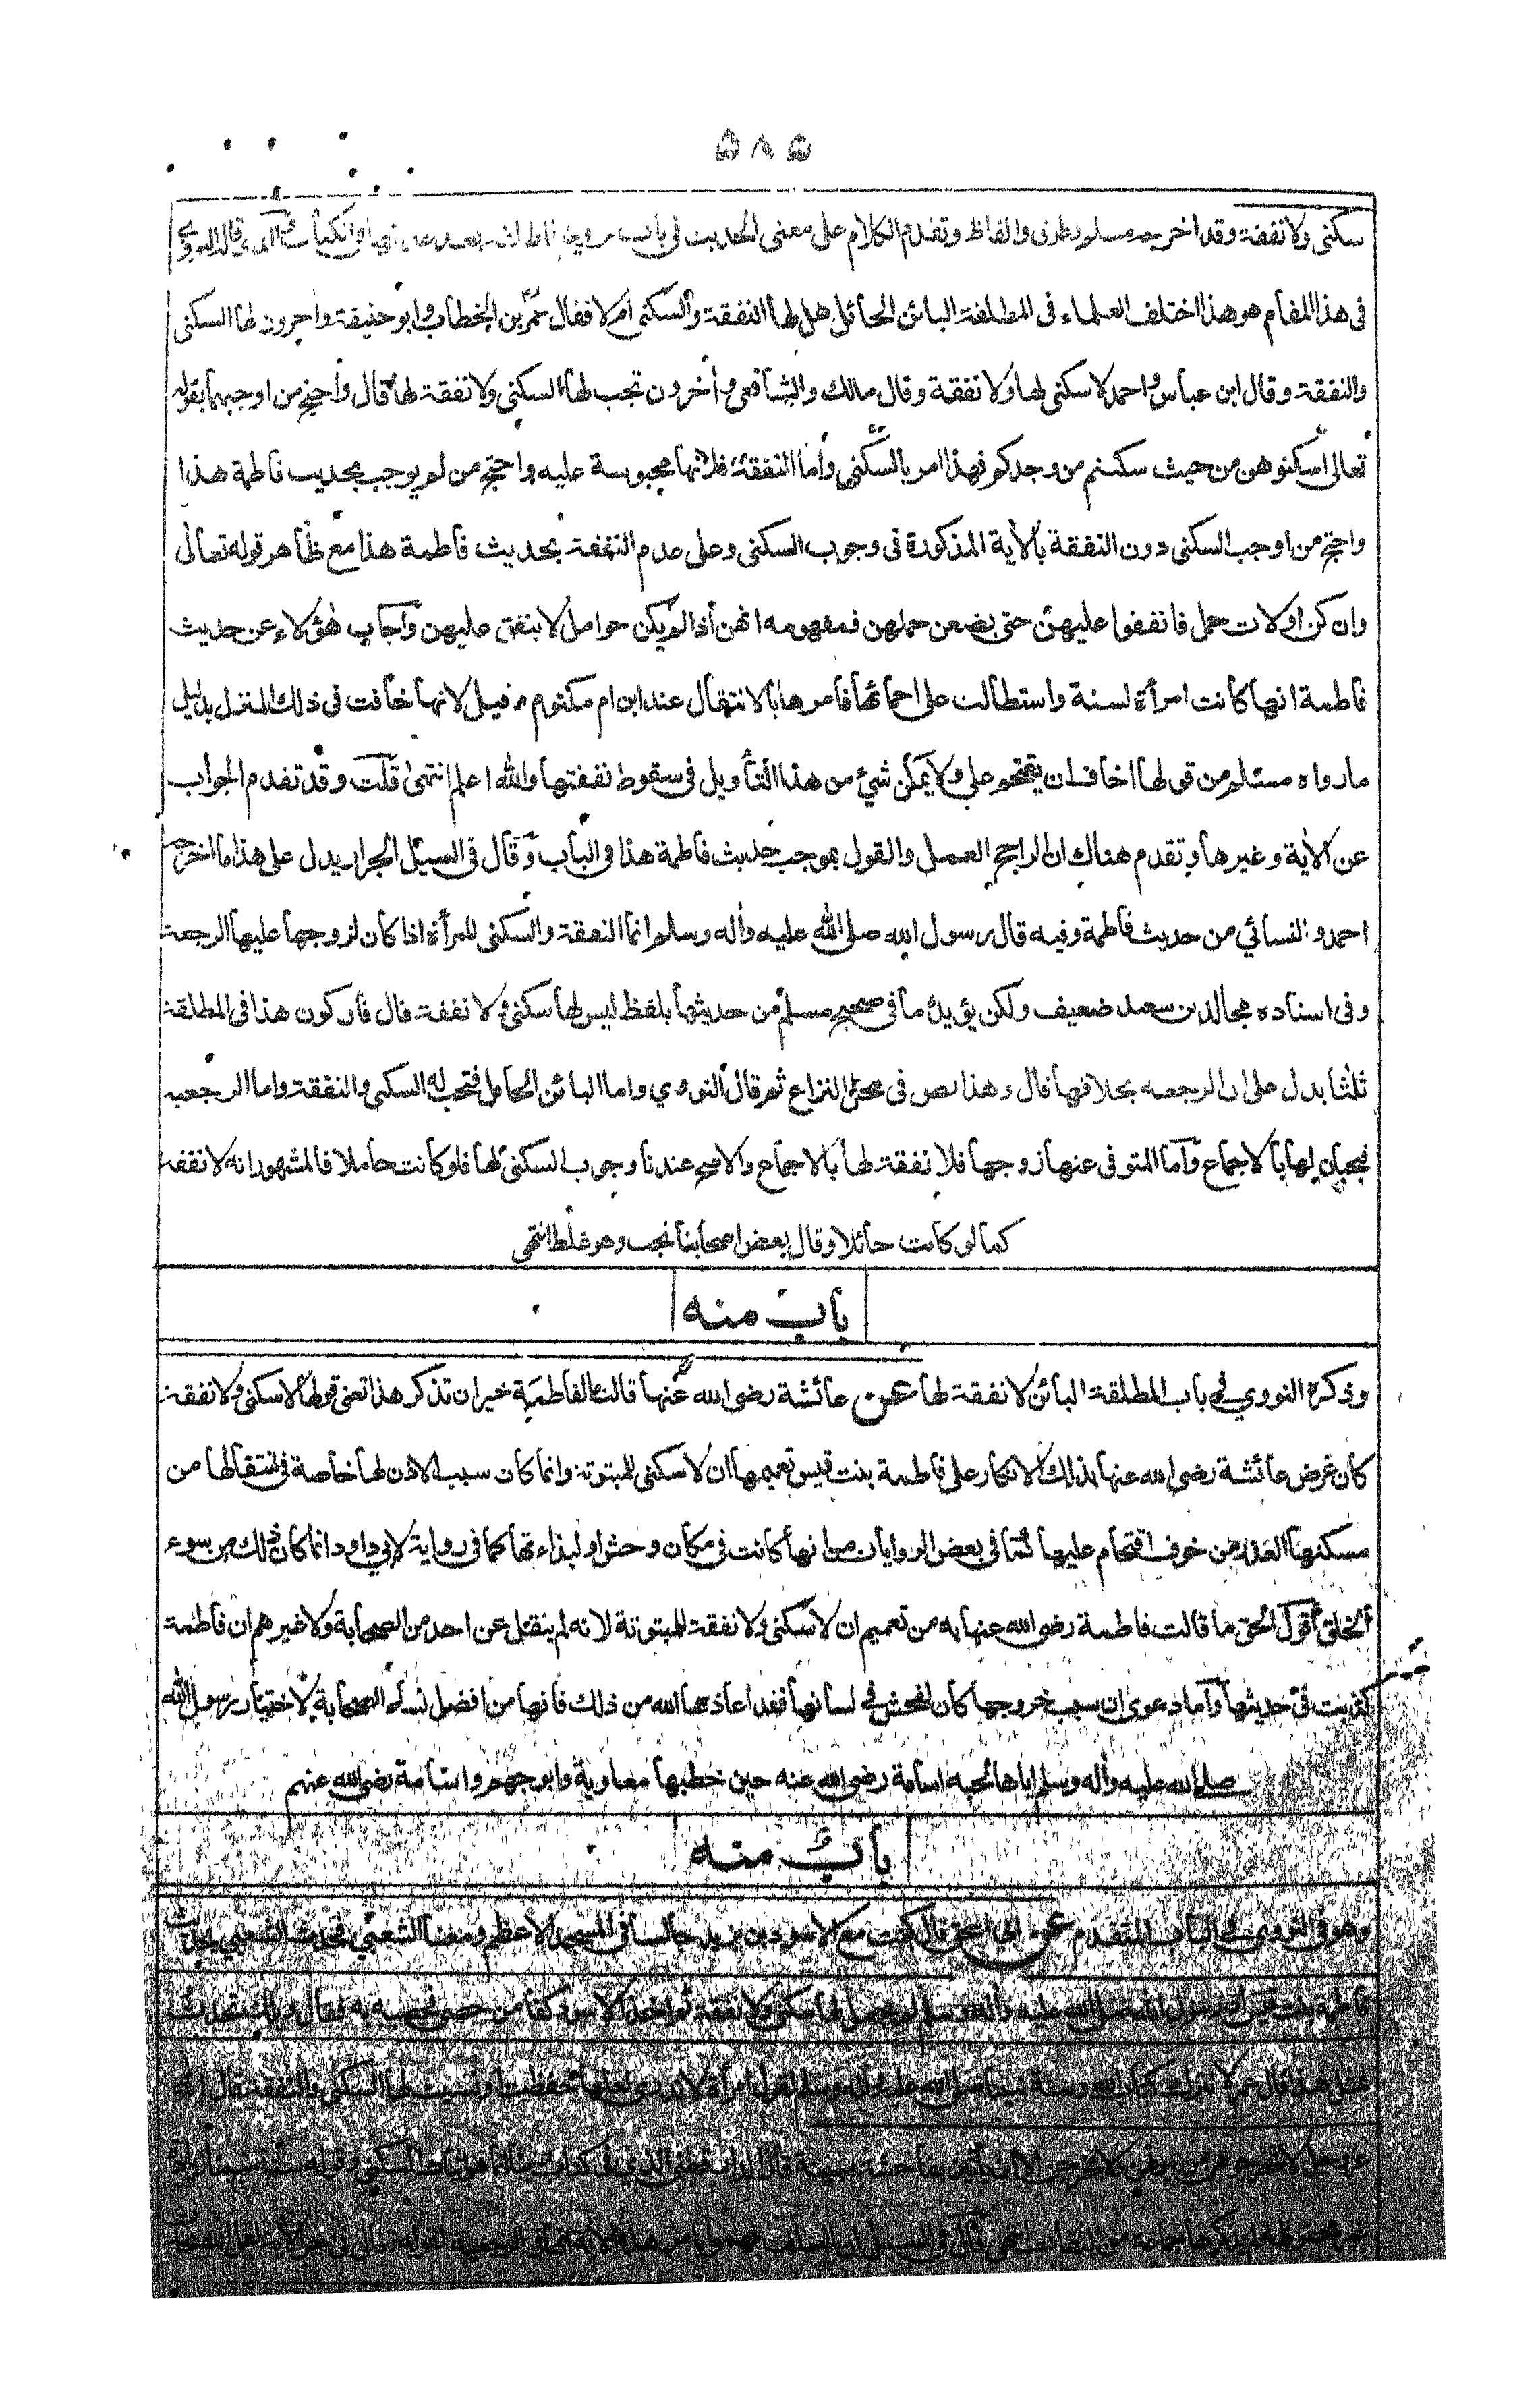 ٥٨٥
سكنى ولا نفقة وقد اخرجه مسلم بطرق والفاظ وتقدم الكلام على معنى الحديث فى باب قال النووي
فى هذا المقام هو هذا اختلف العلماء فى المطلقة البائن الحائل هل لها النفقة والسكنى ام لا فقال عمر بن الخطاب وابو حنيفة واخرون لها السكنى
والنفقة وقال ابن عباس واحمد لا سكنى لها ولا نفقة وقال مالك والشافعى وأخرون تجب لها السكنى ولا نفقة لها قال واحتج من اوجبهما بقوله
تعالى اسكنوهن من حيث سكنتم من وجدكم فهذا امر بالسكنى وأما النفقة فلانها محبوسة عليه واحتج من لم يوجب بحديث فاطمة هذا
واحتج من اوجب السكنى دون النفقة بالأية المذكورة فى وجوب السكنى وعلى عدم النفقة بحديث فاطمة هذا مع ظاهر قوله تعالى
وان كن اولات حمل فانفقوا عليهن حتى يضعن حملهن فمفهومه انهن اذا لم يكن حوامل لا ينفق عليهن وآجاب هؤلاء عن حديث
فاطمة انها كانت امرأة لسنة واستطالت على احمائها فامرها بالانتقال عند ابن ام مكتوم وقيل لانها خافت فى ذلك المنزل بدليل
ما رواه مسلم من قولها اخاف ان يقتحم علي ولا يمكن شيء من هذا التأويل فى سقوط نفقتها والله اعلم انتهى قلت وقد تقدم الجواب
عن الأية وغيرها وتقدم هناك ان الراجح العمل والقول بموجب حديث فاطمة هذا فى الباب وقال فى السيل الجرار يدل على هذا ما اخرجه
احمد والنسائي من حديث فاطمة وفيه قال رسول الله صلى الله عليه وأله وسلم انما النفقة والسكنى للمرأة اذا كان لزوجها عليها الرجعة
وفى اسناده مجالد بن سعيد ضعيف ولكن يؤيده ما فى صحيح مسلم من حديثها بلفظ ليس لها سكنى ولا نفقة قال فان كون هذا فى المطلقة
ثلثا يدل على ان الرجعيه بخلافها قال وهذا نص فى محل النزاع ثم قال النووي واما البائن الحامل فتجب له السكنى والنفقة واما الرجعيه
فيجبان لها بالاجماع وآما المتوفى عنها زوجها فلا نفقة لها بالاجماع والاصح عندنا وجوب السكنى لها فلو كانت حاملا فالمشهور انه لا نفقة
كما لو كانت حائلا وقال بعض اصحابنا تجب وهو غلط انتهى
باب منه
وذكره النووي في باب المطلقة البائن لا نفقة لها عن عائشة رضى الله عنها قالت ما لفاطمة خير ان تذكر هذا تعنى قولها لا سكنى ولا نفقة
كان غرض عائشة رضى الله عنها بذلك الانكار على فاطمة بنت قيس تعميمها ان لا سكنى للمبتوتة وانما كان سبب الاذن لها خاصة فى انتقالها من
مسكنها العذر من خوف اقتحام عليها كما فى بعض الروايات من انها كانت فى مكان وحش او لبذاءتها كما فى رواية لابي داود انما كان ذلك من سوء
الخلق أقول الحق ما قالت فاطمة رضى الله عنها به من تعميم ان لا سكنى ولا نفقة للمبتوتة لانه لم ينقل عن احد من الصحابة ولا غيرهم ان فاطمة
كذبت فى حديثها وآما دعوى ان سبب خروجها كان لفحش في لسانها فقد اعاذها الله من ذلك فانها من افضل نساء الصحابة لاختيار رسول الله
صلى الله عليه وأله وسلم اياها لحبه اسامة رضى الله عنه حين خطبها معاوية وابو جهم واسامة رضى الله عنهم
باب منه
وهو فى النووي في الباب المتقدم عن ابي اسحق قال كنت مع الاسود بن يزيد جالسا فى المسجد الاعظم ومعنا الشعبي فحدث الشعبي بحديث
فاطمة بنت قيس ان رسول الله صلى الله عليه وأله وسلم لم يجعل لها سكنى ولا نفقة ثم اخذ الاسود كفا من حصى فحصبه به فقال ويلك تحدث
بمثل هذا قال عمر لا نترك كتاب الله وسنة نبينا صلى الله عليه وأله وسلم لقول امرأة لا ندرى لعلها حفظت او نسيت لها السكنى والنفقة قال الله
عز وجل لا تخرجوهن من بيوتهن ولا يخرجن الا ان يأتين بفاحشة مبينة قال الدارقطنى الذي فى كتاب ربنا انما هو اثبات السكنى وقوله سنة نبينا
غير محفوظة لم يذكرها جماعة من الثقات انتهى قال فى السيل ان السلف